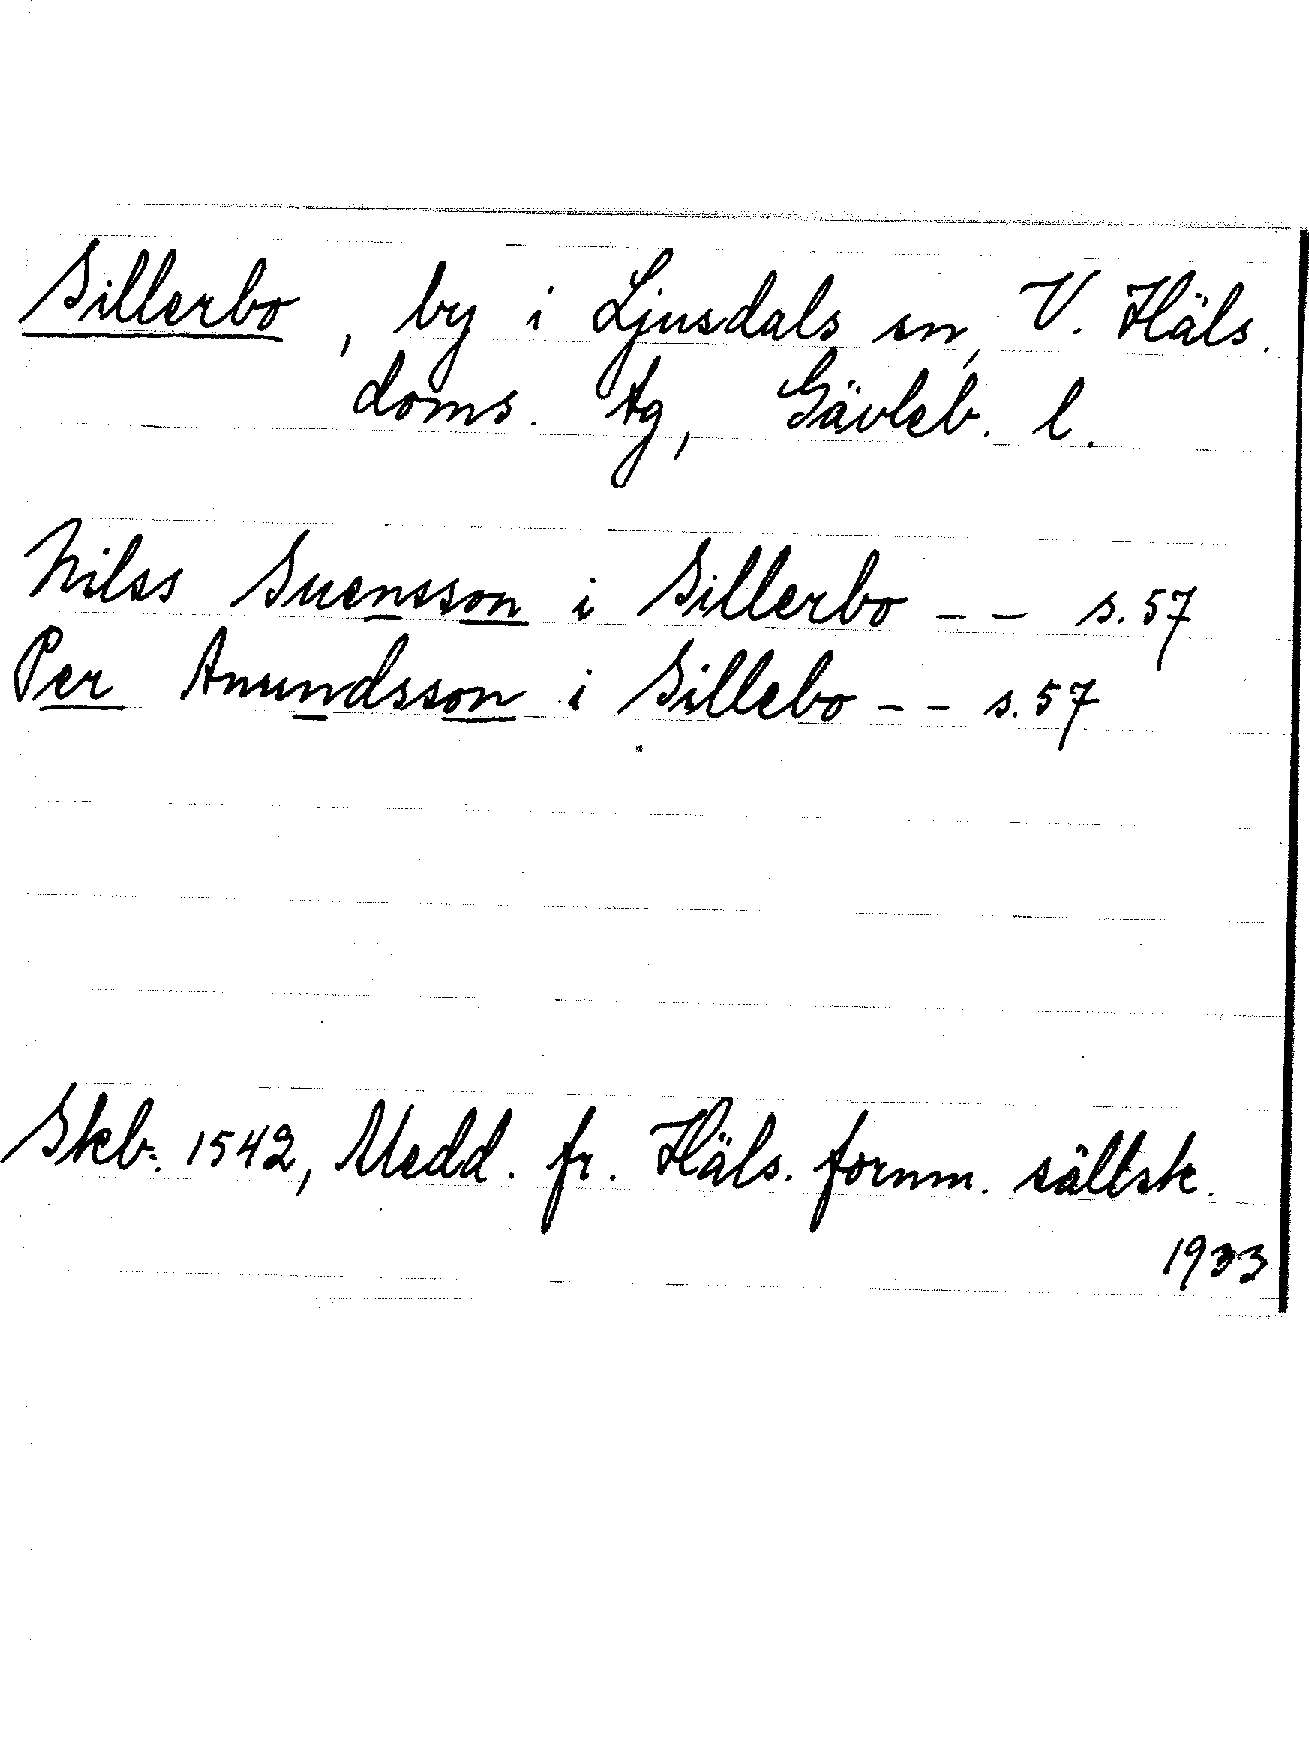 Sillerbo, by i Ljusdals sn, V. Häls.
doms. tg, Gävleb. l.
Nilss Suensson i Sillerbo -- s. 57
Per Anundsson i Sillebo -- s. 57
Skb. 1542, Medd. fr. Häls. fornm. sällsk.
1933